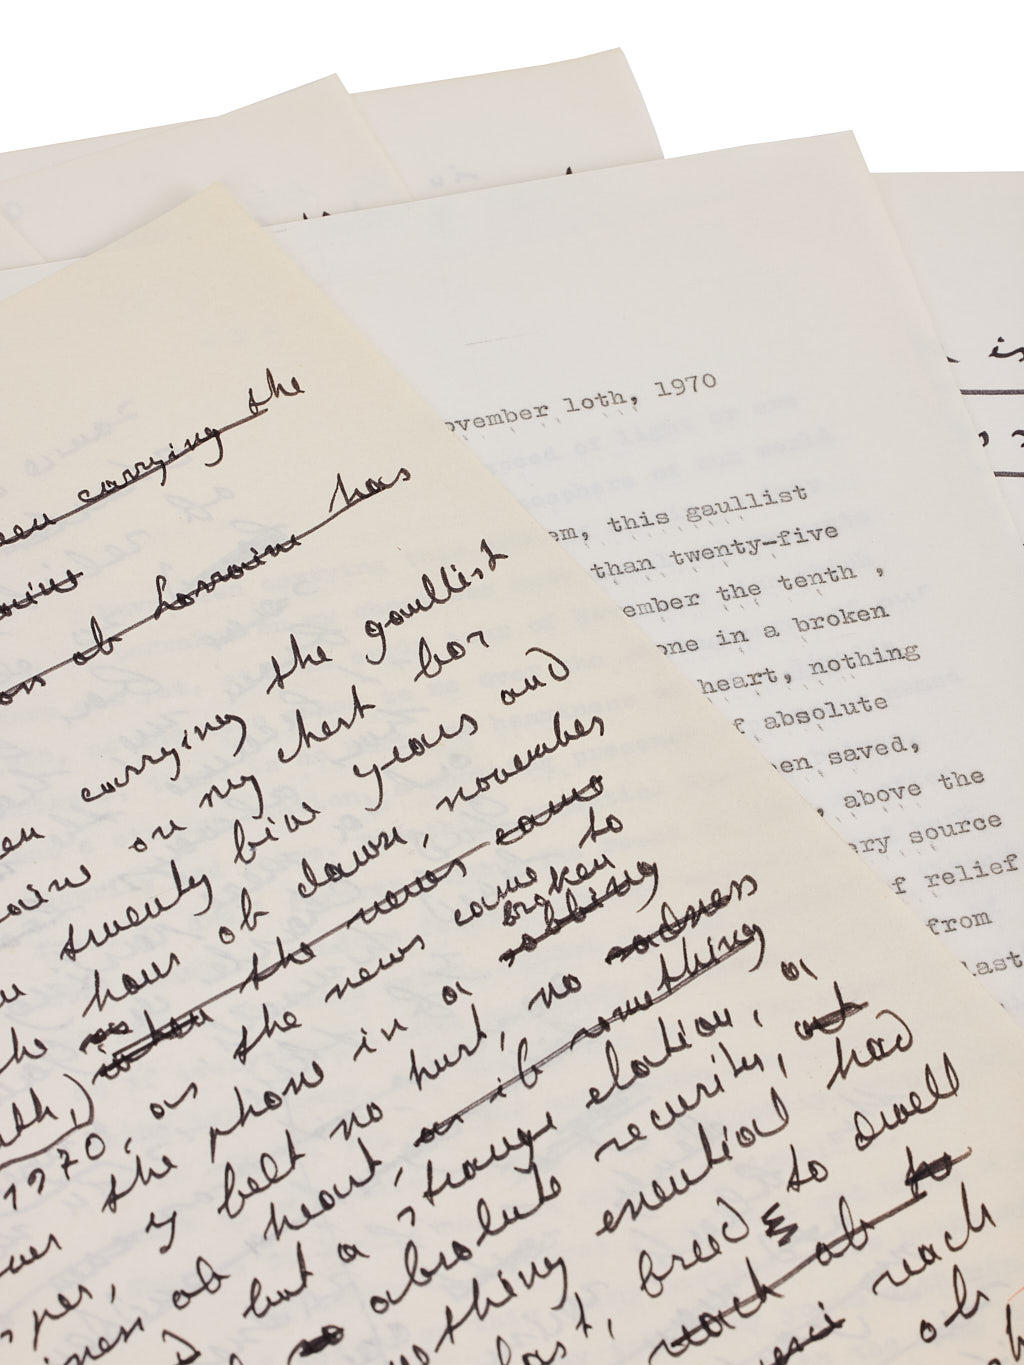 een carrying the
on of Lorraine has
een carrying the gaullist
on my chest for
twenty five years and
hour of dawn, november
when the news came
as the news came to
broken
robbing
the phone in a
i felt no hurt, no sadness
heart, as if something
but a strange elation, a
absolute security, as
something essential had
last, freed to dwell
reach of to
reach
of
1970,
ovember loth, 1970
em, this gaullist
than twenty-five
ember the tenth ,
one in a broken
heart, nothing
f absolute
en saved,
, above the
ery source
f relief
from
last
is